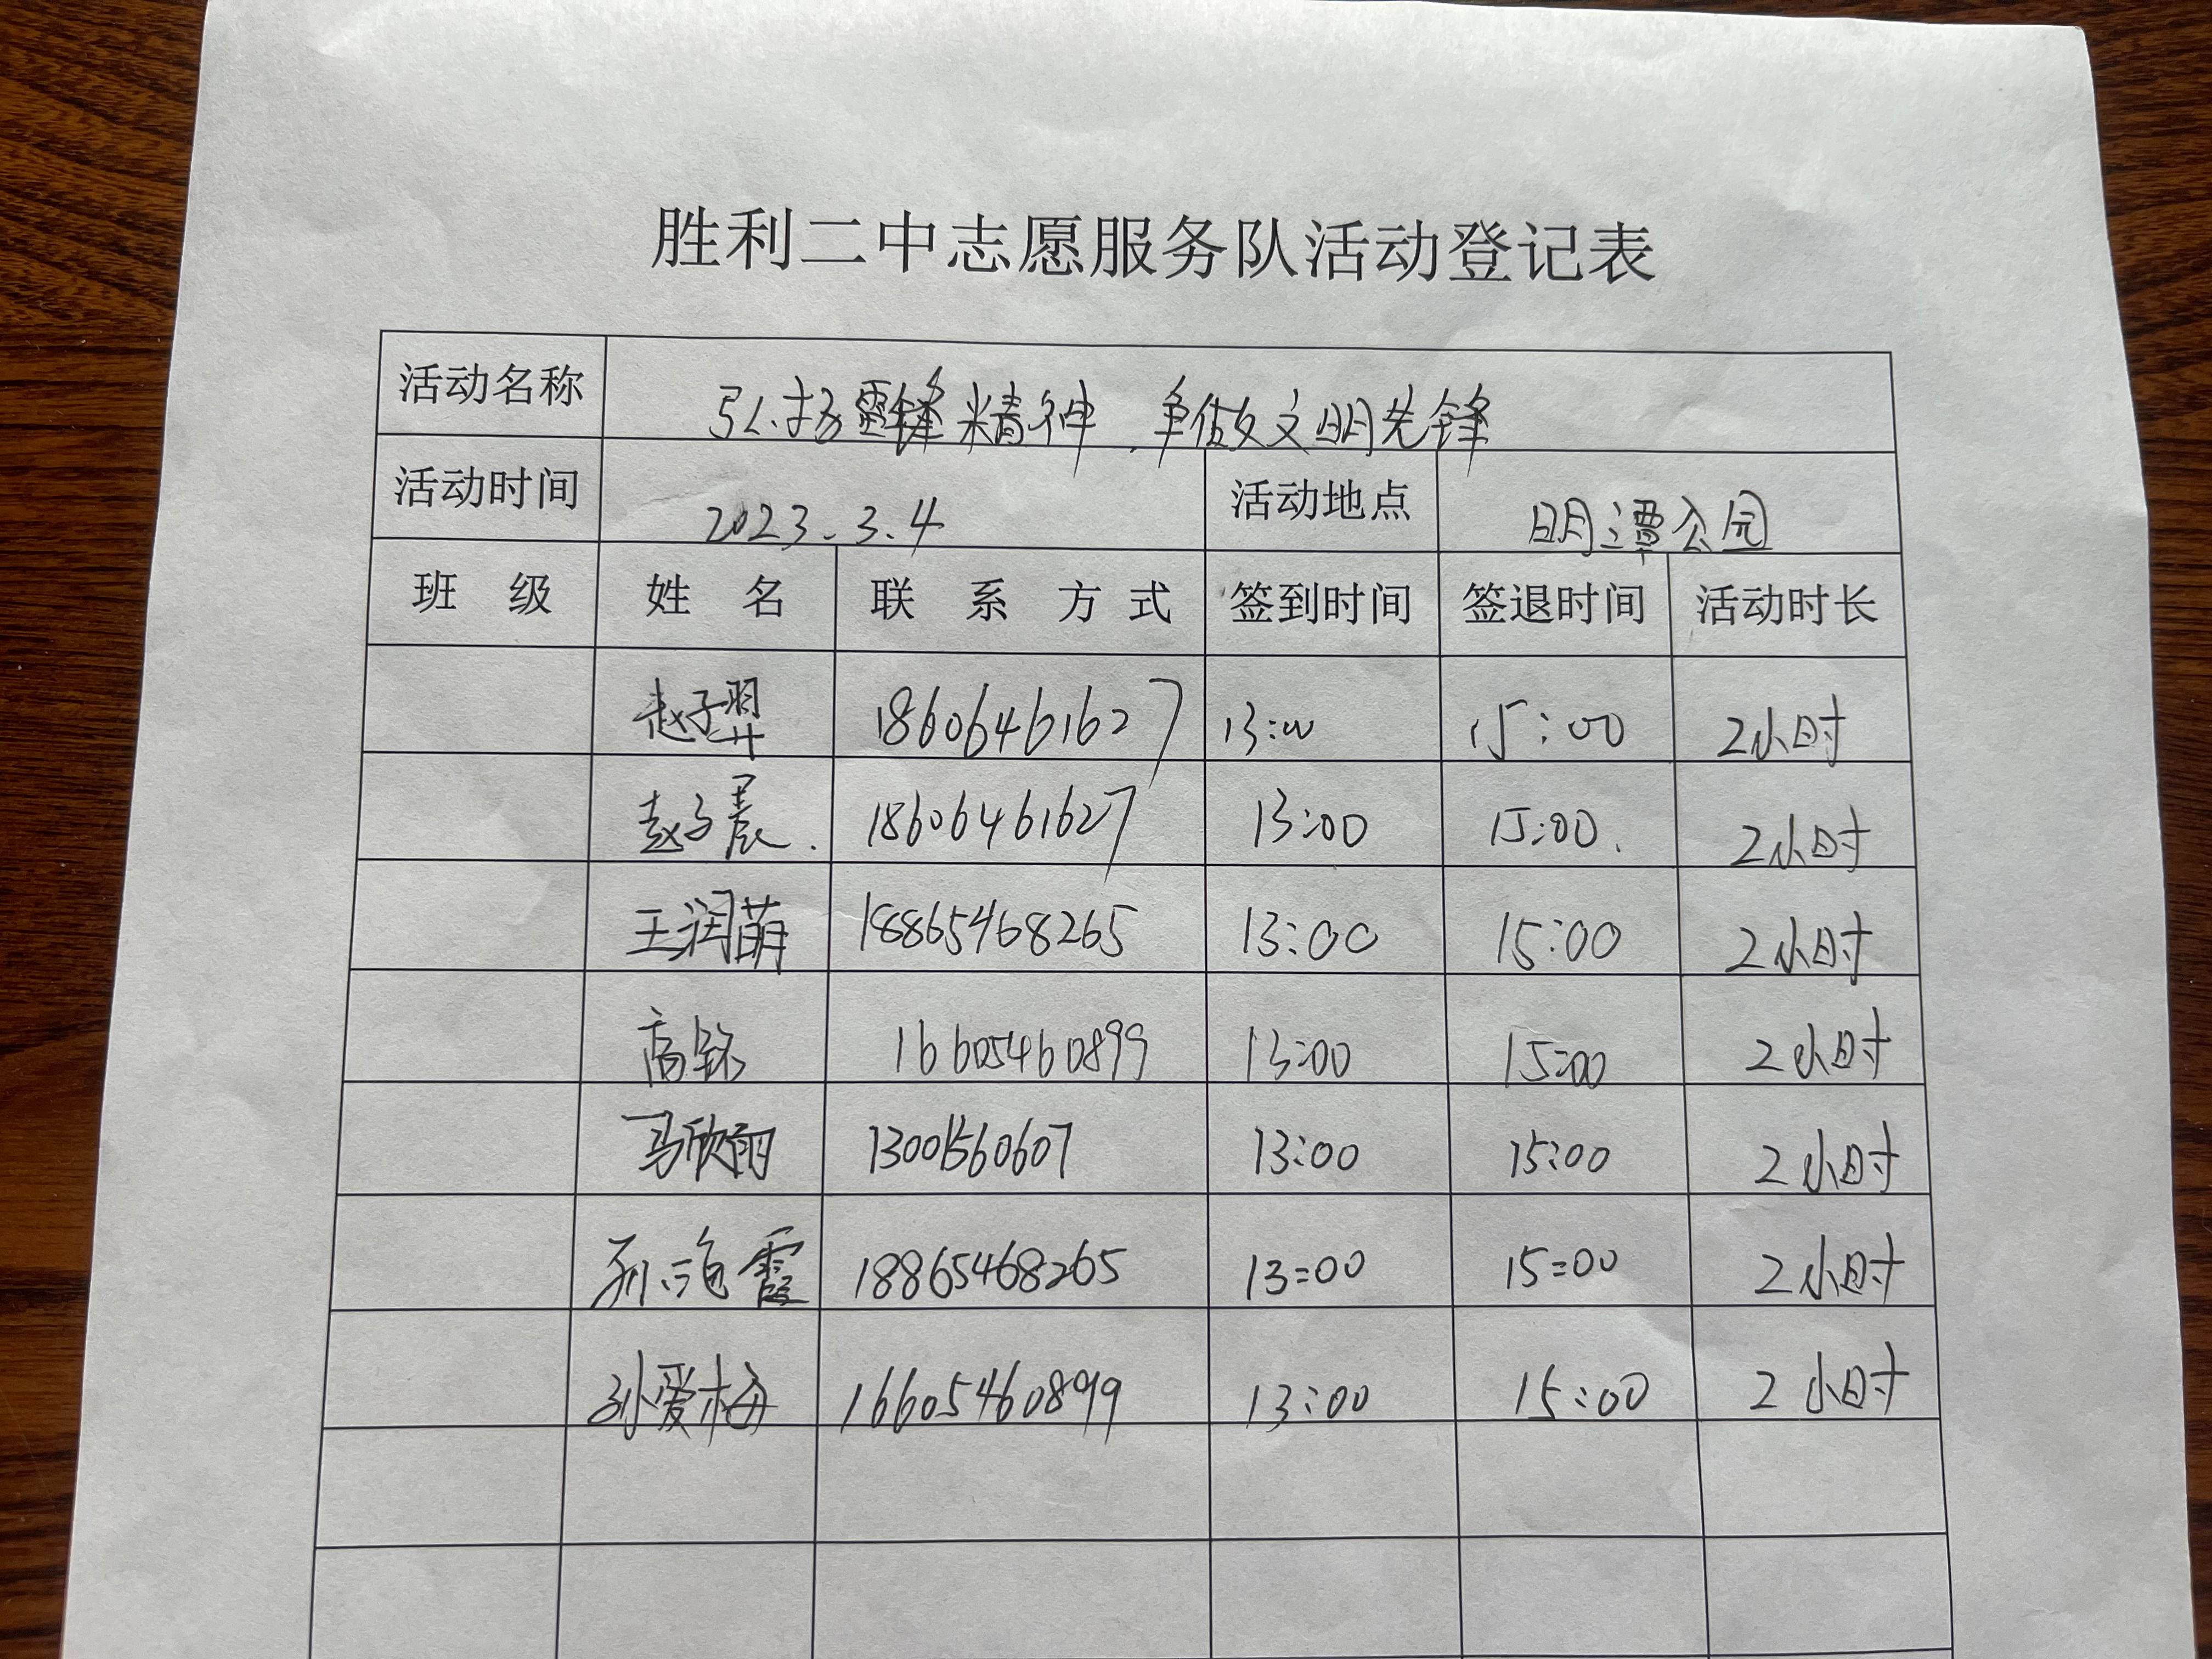 胜利二中志愿服务队活动登记表
活动名称 弘扬雷锋精神、争做文明先锋
活动时间 2023.3.4 活动地点 明潭公园
班 级 姓 名 联 系 方 式 签到时间 签退时间 活动时长
赵子羿 18606461627 13:00 15:00 2小时
赵子晨. 18606461627 13:00 15:00. 2小时
王润萌 18865468265 13:00 15:00 2小时
高铭 16605460899 13:00 15:00 2小时
马欣雨 13001560607 13:00 15:00 2小时
霞 18865468265 13:00 15:00 2小时
孙爱梅 16605460899 13:00 15:00 2小时